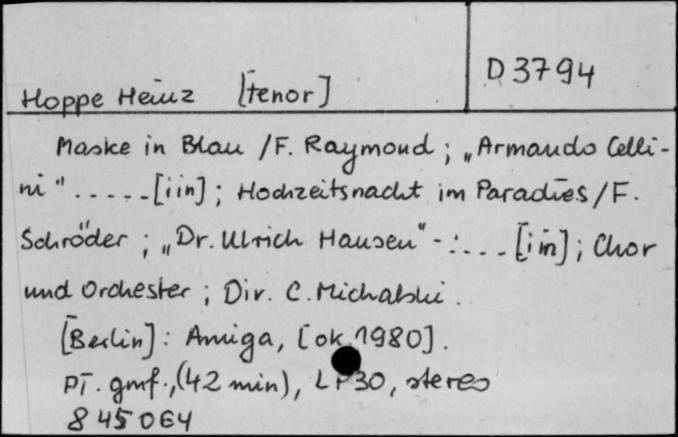 D 3794
Hoppe Heinz [tenor]
Maske in Blau / F. Raymond ; „Armando Celli-
ni" ..... [iin] ; Hochzeitsnacht im Paradies / F.
Schröder ; „Dr. Ulrich Hausen" ..... [iin] ; Chor
und Orchester ; Dir. C. Michalski.
[Berlin] : Amiga, [ok. 1980].
pł. gmf., (42 min), LP30, stereo
8 45 064